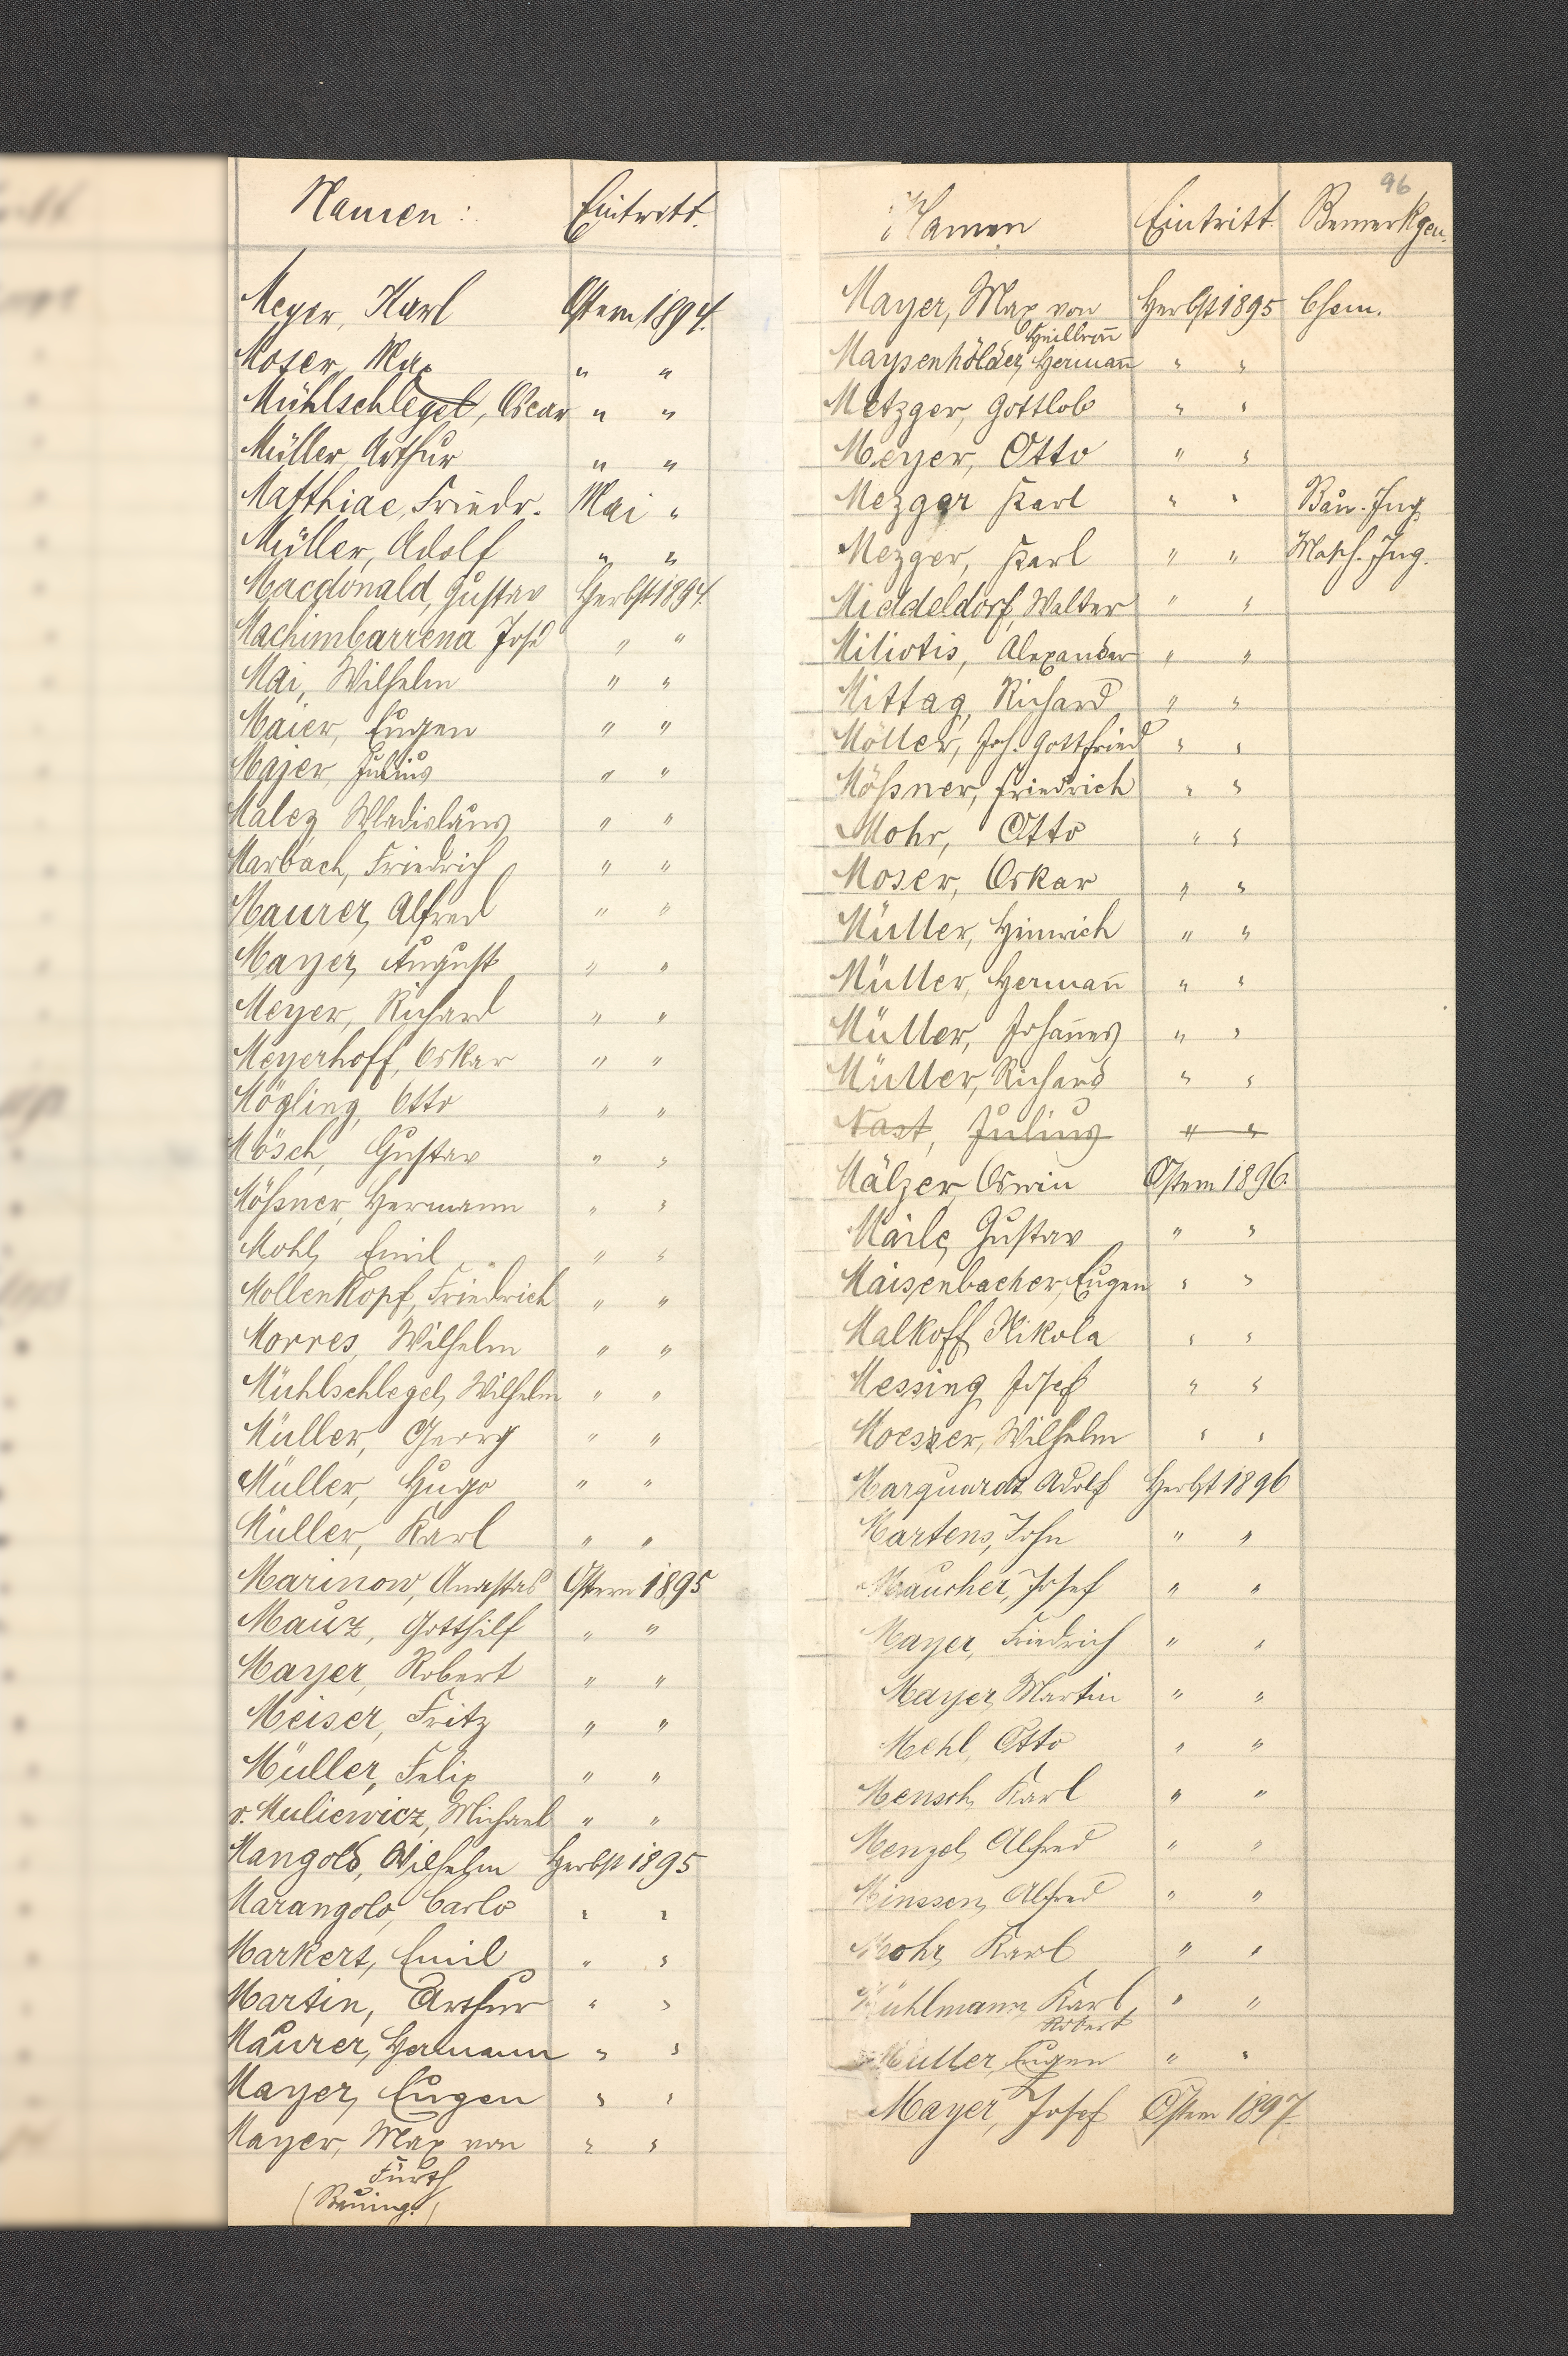 Namen: Eintritt.
Meyer, Karl Ostern 1894.
Moser, Max " "
Mühlschlegel, Oscar " "
Müller, Arthur " "
Matthiae, Friedr. Mai "
Müller, Adolf " "
Macdonald, Gustav Herbst 1894.
Machimbarrena José " "
Mai, Wilhelm " "
Maier, Eugen " "
Majer, Julius " "
Malez Wladislaus " "
Marbach, Friedrich " "
Maurer, Alfred " "
Mayer, August " "
Meyer, Richard " "
Meyerhoff, Oskar " "
Mögling, Otto " "
Mösch, Gustav " "
Mößner, Hermann " "
Mohl, Emil " "
Mollenkopf, Friedrich " "
Morres, Wilhelm " "
Mühlschlegel, Wilhelm " "
Müller, Georg " "
Müller, Hugo " "
Müller, Karl " "
Marinow, Anastas Ostern 1895
Mauz, Gotthilf " "
Mayer, Robert " "
Meiser, Fritz " "
Müller, Felix " "
v. Muliewicz, Michael " "
Mangold, Wilhelm Herbst 1895
Marangolo, Carlo " "
Markert, Emil " "
Martin, Arthur " "
Maurer, Hermann " "
Mayer, Eugen " "
Mayer, Max von " "
Fürth
(Bauing.)
96
Namen Eintritt. Bemerkgen.
Mayer, Max von Herbst 1895 Chem.
Heilbronn
Maysenhölder, Hermann " "
Metzger, Gottlob " "
Meyer, Otto " "
Mezger Karl " " Bau-Ing
Mezger, Karl " " Masch. Ing.
Middeldorf, Walter " "
Miliotis, Alexander " "
Mittag, Richard " "
Möller, Joh. Gottfried " "
Mößner, Friedrich " "
Mohr, Otto " "
Moser, Oskar " "
Müller, Hinrich " "
Müller, Hermann " "
Müller, Johannes " "
Müller, Richard " "
Nast, Julius " "
Mälzer Oswin Ostern 1896.
Maile, Gustav " "
Maisenbacher, Eugen " "
Malkoff Nikola " "
Messing Josef " "
Moeszer, Wilhelm " "
Marquardt, Adolf Herbst 1896
Martens, John " "
Maucher, Josef " "
Mayer, Friedrich " "
Mayer, Martin " "
Mehl, Otto " "
Mensch, Karl " "
Menzel, Alfred " "
Minssen, Alfred " "
Mohr, Karl " "
Mühlmann, Karl, " "
Robert
Müller, Eugen " "
Mayer, Josef Ostern 1897.